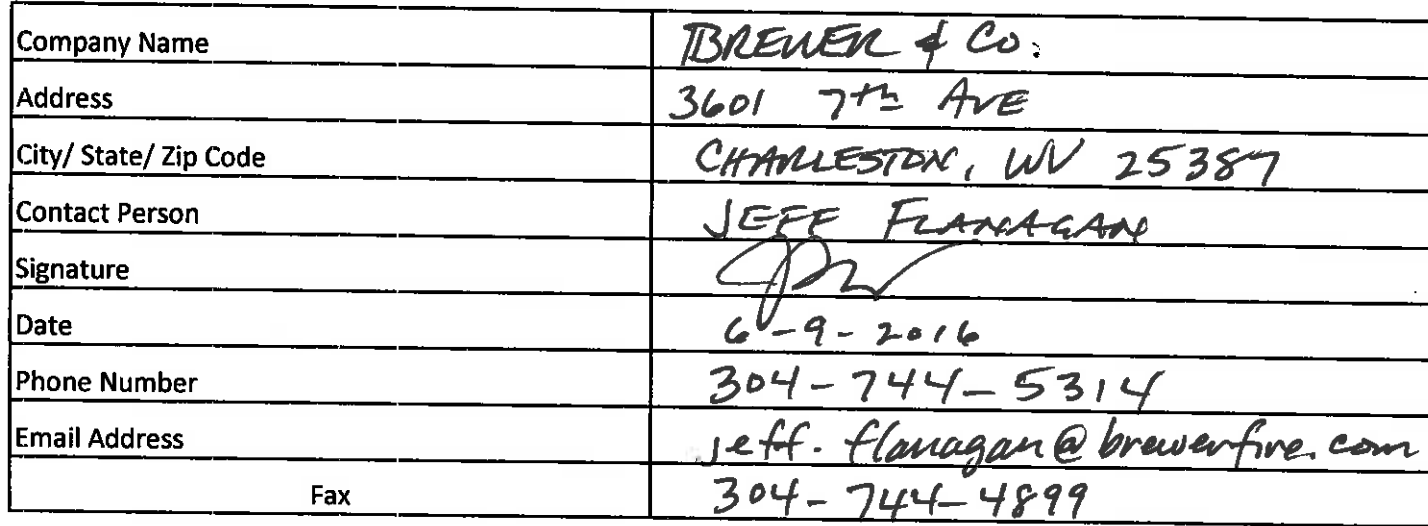 Company Name BREWER & Co.
Address 3601 7th AVE
City/ State/ Zip Code CHARLESTON, WV 25387
Contact Person JEFF FLANAGAN
Signature
Date 6-9-2016
Phone Number 304-744-5314
Email Address jeff.flanagan@brewerfire.com
Fax 304-744-4899